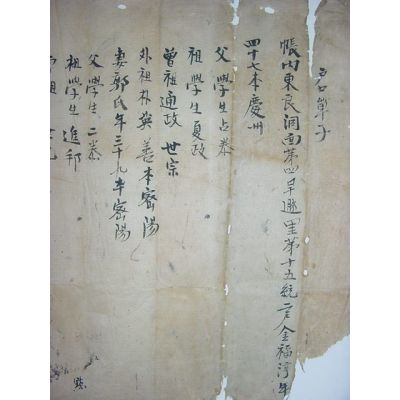 單子
帳內東良洞面第四早遜里第十五統 戶金福淳年
四十七本慶州
父學生占泰
祖學生夏政
曾祖通政 世宗
外祖朴英善本密陽
妻郭氏年三十九本密陽
父學生二泰
祖學生進邦